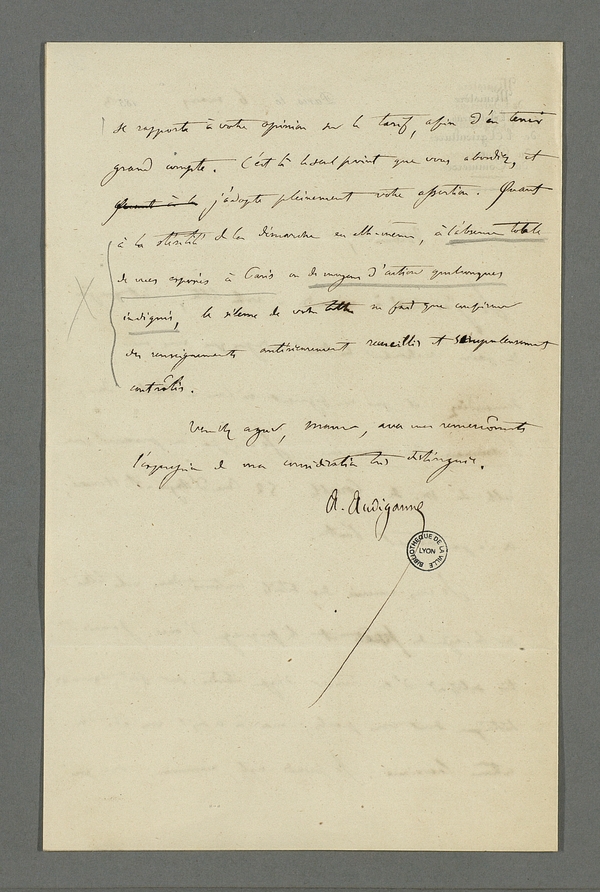 se rapporte à votre opinion sur le tarif, afin d'en tenir
grand compte. C'est là le seul point que vous abordiez, et
quant à la j'adopte pleinement votre assertion. Quant
à la stérilité de la démarche en elle-même, à l'absence totale
de vues exposées à Paris ou de moyens d'action quelconques
indiqués, le silence de votre lettre ne fait que confirmer
des renseignements antérieurement recueillis et scrupuleusement
contrôlés.
Veuillez agréer, Monsieur, avec mes remerciements
l'expression de ma considération très distinguée.
A. Audiganne
BIBLIOTHEQUE DE LA VILLE
LYON